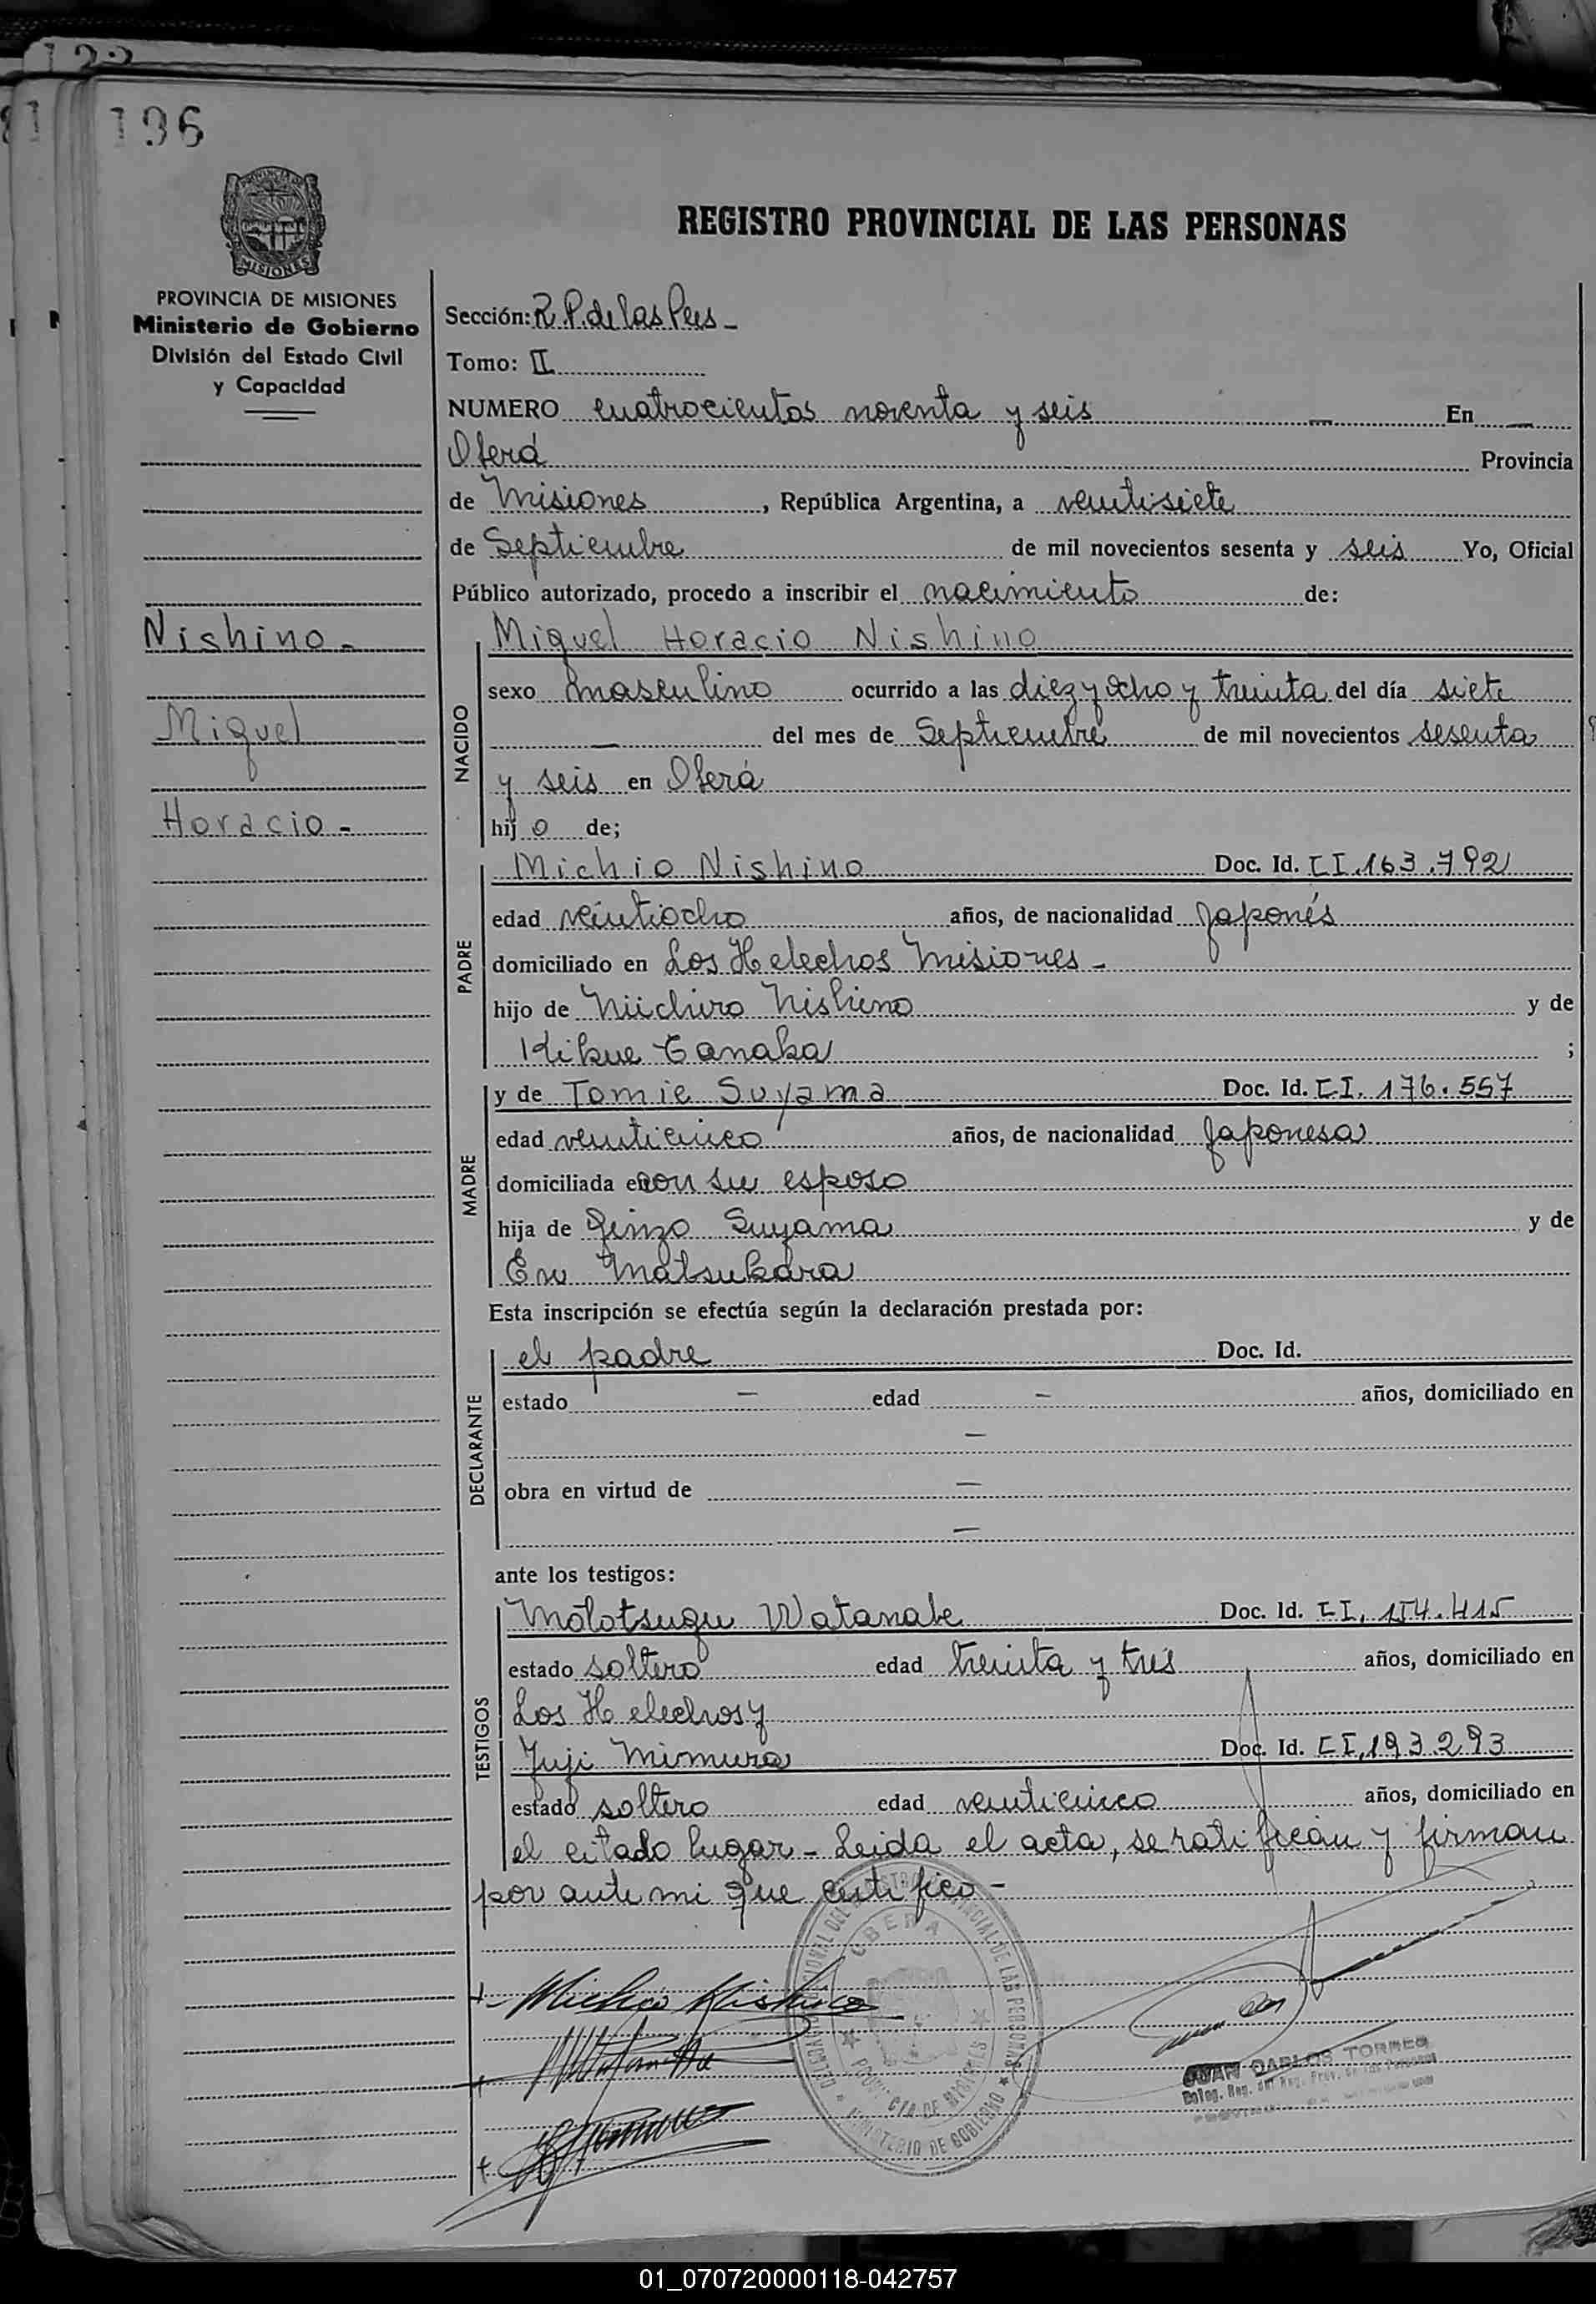 196
MISIONES
PROVINCIA DE MISIONES
Ministerio de Gobierno
División del Estado Civil
y Capacidad
Nishino -
Miguel
Horacio -
REGISTRO PROVINCIAL DE LAS PERSONAS
Sección: R.P. de las Pers -
Tomo: II
NUMERO cuatrocientos noventa y seis — En —
Oberá Provincia
de Misiones, República Argentina, a veintisiete
de Septiembre de mil novecientos sesenta y seis Yo, Oficial
Público autorizado, procedo a inscribir el nacimiento de:
NACIDO
Miguel Horacio Nishino
sexo masculino ocurrido a las diez y ocho y treinta del día siete
— del mes de Septiembre de mil novecientos sesenta
y seis en Oberá
hijo de;
PADRE
Michio Nishino Doc. Id. CI.163.792
edad veintiocho años, de nacionalidad Japonés
domiciliado en Los Helechos Misiones -
hijo de Niichiro Nishino y de
Kikue Tanaka ;
MADRE
y de Tomie Suyama Doc. Id. CI. 176.557
edad veinticinco años, de nacionalidad Japonesa
domiciliada en con su esposo
hija de Ginzo Suyama y de
En Matsukara
Esta inscripción se efectúa según la declaración prestada por:
DECLARANTE
el padre Doc. Id.
estado — edad — años, domiciliado en
—
obra en virtud de —
—
ante los testigos:
TESTIGOS
Mototsugu Watanabe Doc. Id. CI. 154.415
estado soltero edad treinta y tres años, domiciliado en
Los Helechos y
Yuji Mimura Doc. Id. CI,193.293
estado soltero edad veinticinco años, domiciliado en
el citado lugar - Leida el acta, se ratifican y firman
por ante mi que certifico -
Michio Nishino
OBERA
PROVINCIA DE MISIONES
MINISTERIO DE GOBIERNO
JUAN CARLOS TORRES
01_070720000118-042757